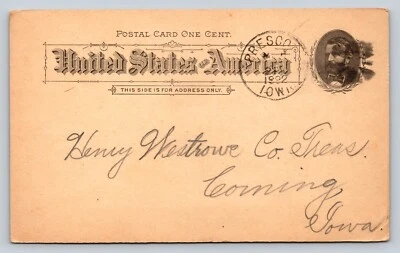 POSTAL CARD ONE CENT.
United States of America
THIS SIDE IS FOR ADDRESS ONLY.
PRESCO
1892
IOWA
Henry Westrowe Co. Treas.
Corning
Iowa.